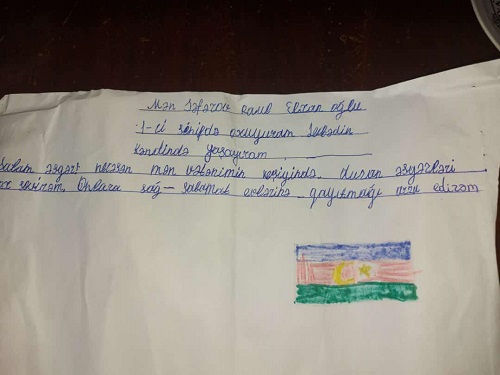 Mən Səfərov Raul Elxan oğlu
1-ci sinipdə oxuyuram
kəndində yaşayıram
Salam əsgər necəsən mən vətənimin keşiyində duran əsgərləri
sevirəm. Onlara sağ-salamat evlərinə qayıtmağı arzu edirəm